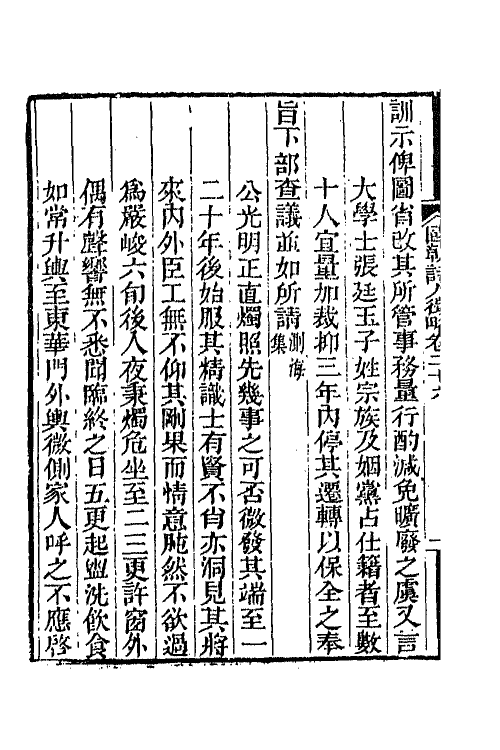 國朝詩人徵略卷二十六 一
訓示俾圖省改其所管事務量行酌減免曠廢之虞又言
大學士張廷玉子姓宗族及姻黨占仕籍者至數
十人宜量加裁抑三年內停其遷轉以保全之奉
旨下部查議並如所請測海集
公光明正直燭照先幾事之可否微發其端至一
二十年後始服其精識士有賢不肖亦洞見其將
來內外臣工無不仰其剛果而情意肫然不欲過
為嚴峻六旬後入夜秉燭危坐至二三更許窗外
偶有聲響無不悉聞臨終之日五更起盥洗飲食
如常升輿至東華門外輿微側家人呼之不應啓